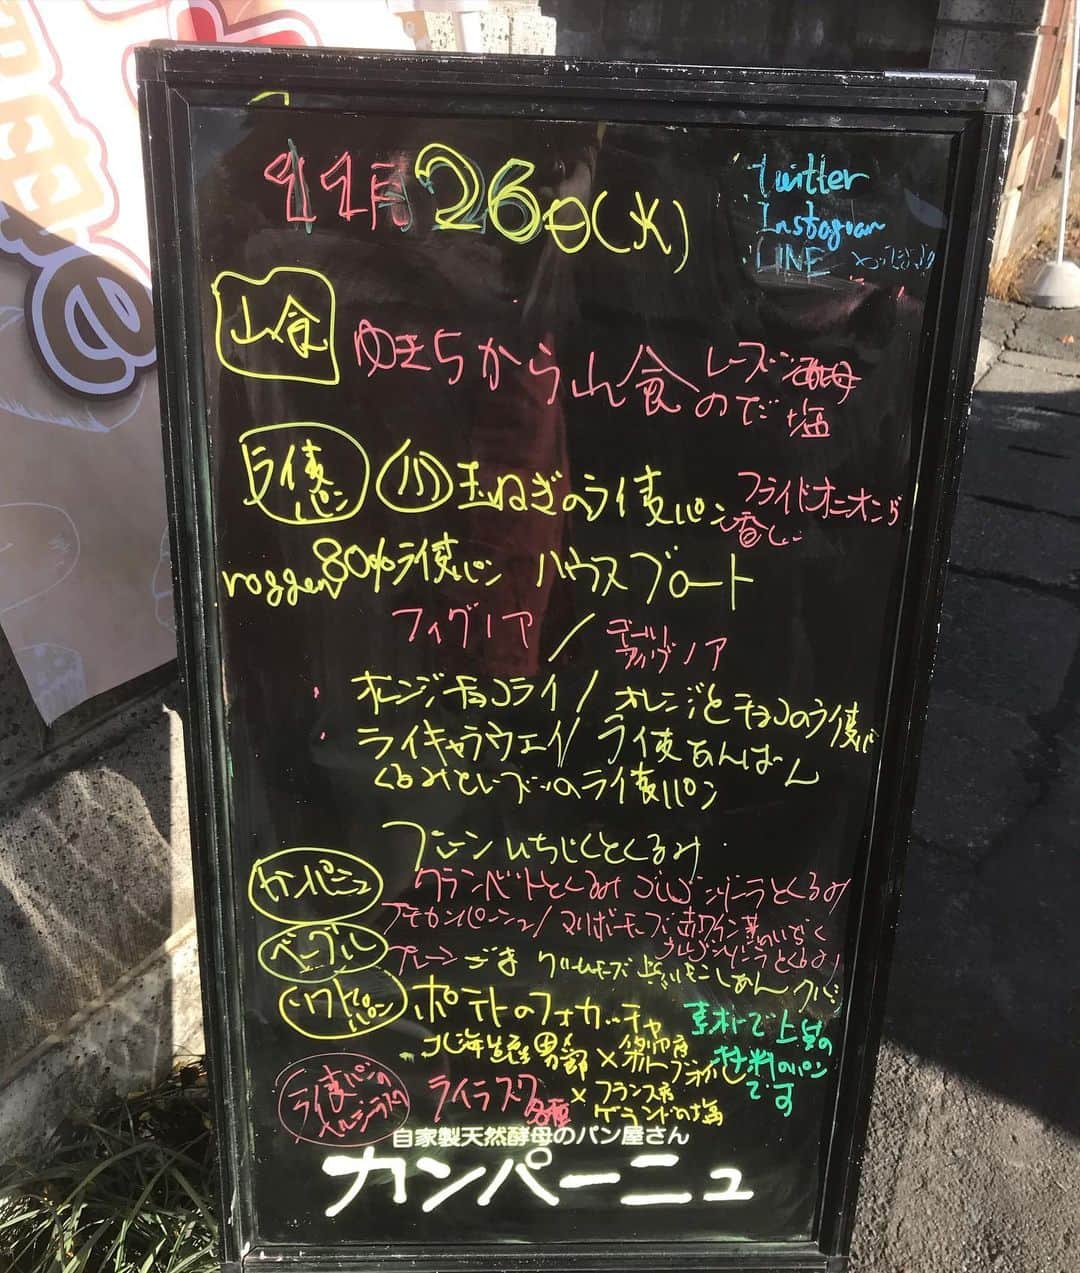 11月26日(火)
Twitter
Instagram
LINE
山食
ゆきちから山食
レーズン酵母
のだ塩
ライ麦
パン
玉ねぎのライ麦パン
フライドオニオンが
香ばしい
roggen80%ライ麦パン ハウスブロート
フィグノア/
ゴールド
フィグノア
オレンジチョコライ/オレンジとチョコのライ麦パン
ライキャラウェイ/ライ麦あんぱん
くるみとレーズンのライ麦パン
カンパーニュ
プレーン いちじくとくるみ
クランベリーとくるみ ゴルゴンゾーラとくるみ
プチカンパーニュ/マリボーチーズ 赤ワイン煮のいちじく
ゴルゴンゾーラとくるみ
ベーグル
プレーン ごま クリームチーズ こしあん
ソフトパン
ポテトのフォカッチャ
北海道産男爵×
オリーブオイル
×フランス産
ゲランドの塩
素朴で上質の
材料のパン
です
ライ麦パンの
ライラスク各種
自家製天然酵母のパン屋さん
カンパーニュ